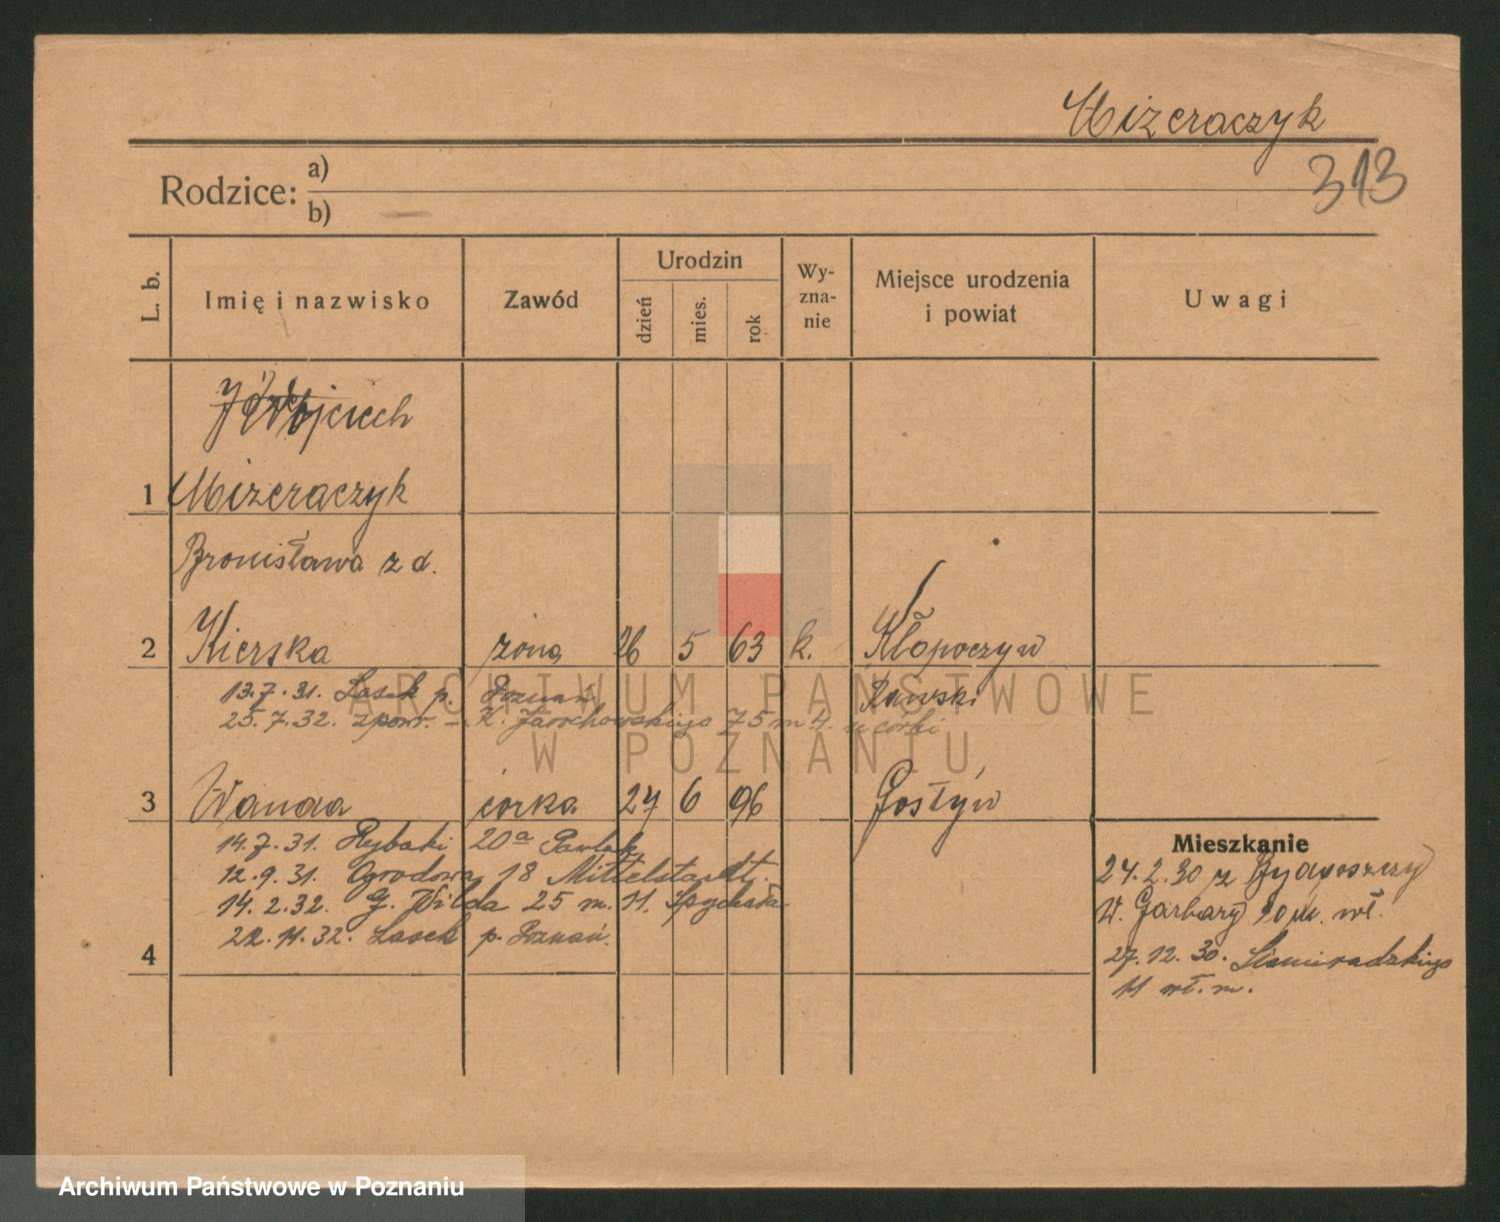 Mizeraczyk
313
Rodzice: a)
b)
L. b.
Imię i nazwisko
Zawód
Urodzin
dzień
mies.
rok
Wy-
zna-
nie
Miejsce urodzenia
i powiat
Uwagi
Wojciech
1 Mizeraczyk
Bronisława z d.
2 Kierska żona 26 5 63 k. Kłopoczyn
13.7.31. Lasek p. Poznań Rawski
25.7.32. zpowr. – K. Jarochowskiego 75 m 4. u córki
3 Wanda córka 27 6 96 Gostyń
14.7.31. Rybaki 20a Pawlak
12.9.31. Ogrodowa 18 Mittelstaedt.
14.2.32. G. Wilda 25 m. 11. Spychała
22.11.32. Lasek p. Poznań.
4
Mieszkanie
24.2.30 z Bydgoszczy
W. Garbary wł.
27.12.30. Siemiradzkiego
11 wł. m.
ARCHIWUM PAŃSTWOWE
W POZNANIU
Archiwum Państwowe w Poznaniu